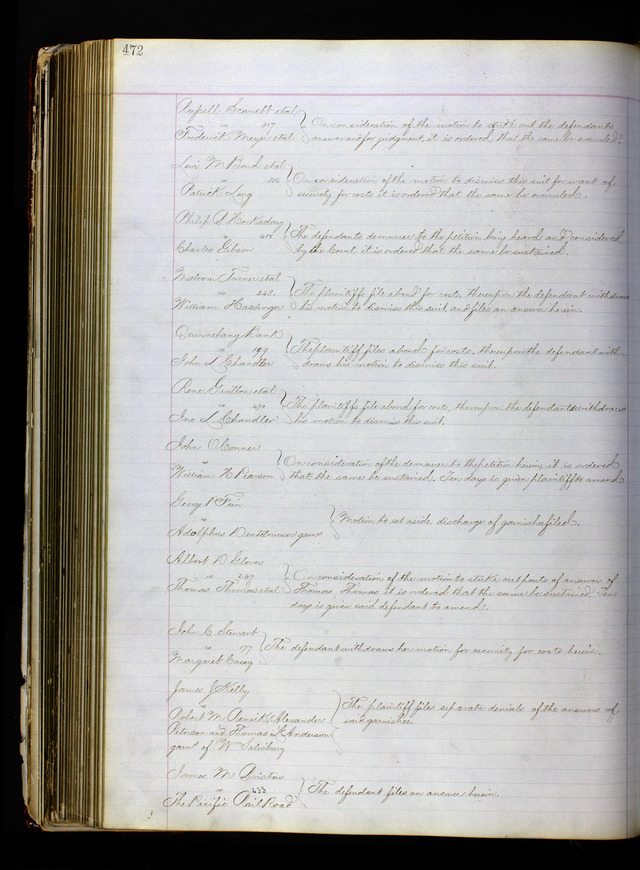 472
Russell Scarritt etal
317
Frederick Meyer etal
On consideration of the motion to strike out the defendants
answer and for judgment, it is ordered that the same be overruled.
Levi M Bond etal
Patrick Long
On consideration of the motion to dismiss this suit for want of
security for costs it is ordered that the same be overruled.
Philip D Hockaday
Charles Gibson
The defendants demurrer to the petition being heard and considered
by the Court it is ordered that the same be sustained.
Turner etal
vs 243.
William Hassinger
The plaintiffs file a bond for costs, thereupon the defendant withdraws
his motion to dismiss this suit and files an answer herein.
Bank
vs 199
John L Chandler
The plaintiff files a bond for costs, thereupon the defendant with-
draws his motion to dismiss this suit.
Rene Guitton etal
vs 470
Jno L Chandler
The plaintiffs file a bond for costs, thereupon the defendant withdraws
his motion to dismiss this suit.
John OConner
vs
William H Pearson
On consideration of the demurrer to the petition herein, it is ordered
that the same be sustained. Ten days is given plaintiff to amend
George P
vs
Adolphus
Motion to set aside discharge of garnishee filed.
Albert D Glover
vs 247
Thomas Thomas etal
On consideration of the motion to strike out parts of answer of
Thomas Thomas it is ordered that the same be sustained. Ten
days is given said defendant to amend.
John C Stewart
vs 177
Margaret Casey
The defendant withdraws her motion for security for costs herein.
James J Kelly
vs
Robert M Renick, Alexander
Peterson and Thomas L Anderson
garn of Wm Salisbury
The plaintiff files separate denials of the answers of
said garnishee.
James M
vs 433
The Pacific Rail Road
The defendant files an answer herein.